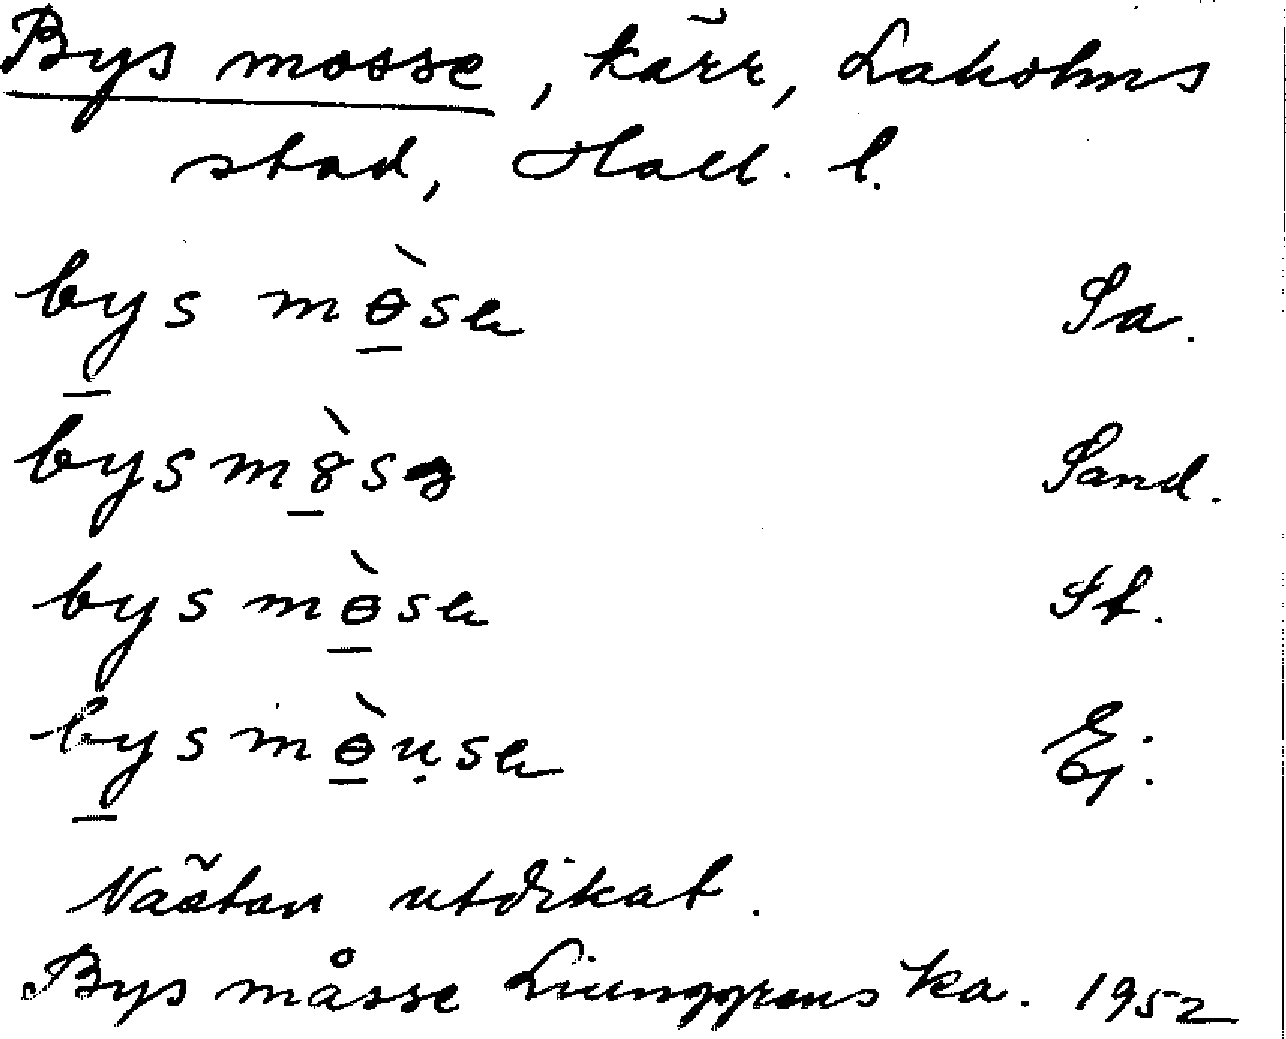 Bys mosse, kärr, Laholms
stad, Hall. l.
bys mɵ̀se Sa.
bysm8̀sə Sand.
bys mɵ̀se St.
bysmɵ̀u̩se Ej.
Nästan utdikat.
Bys måsse Ljunggrens ka. 1952